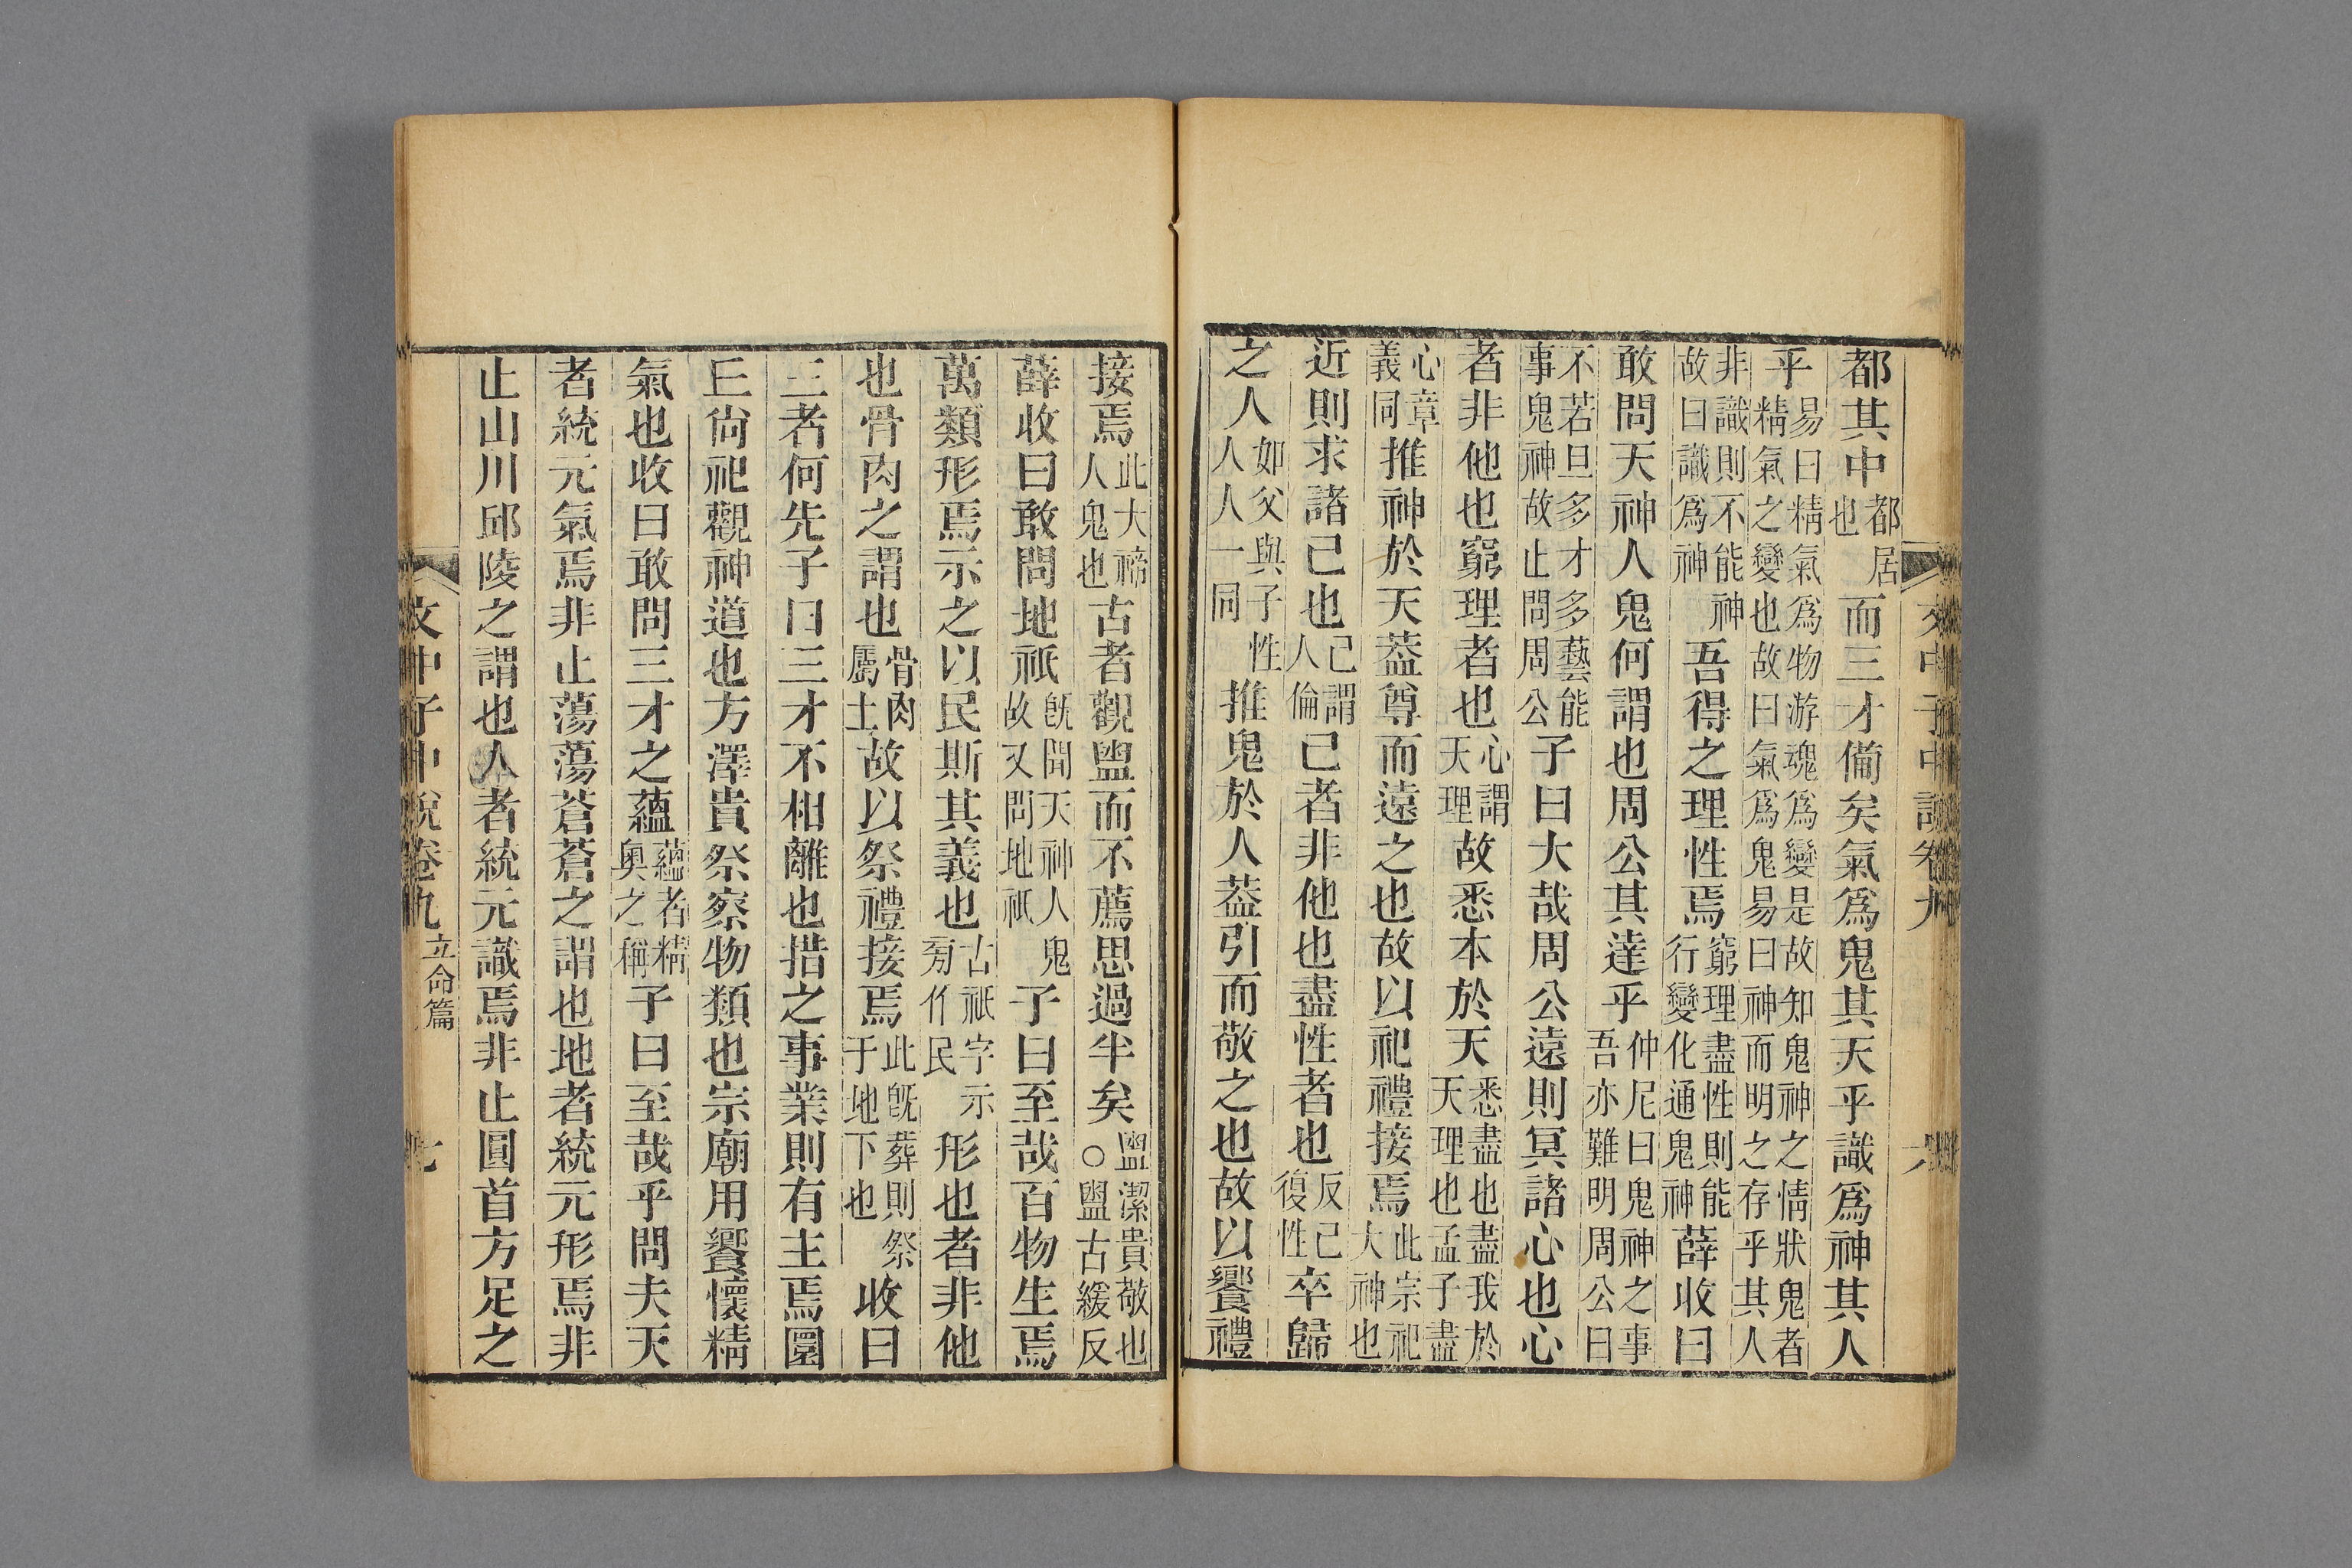 都其中都居也而三才備矣氣爲鬼其天乎識爲神其人
乎易曰精氣爲物游魂爲變是故知鬼神之情狀鬼者精氣之變也故曰氣爲鬼易曰神而明之存乎其人
非識則不能神故曰識爲神吾得之理性焉窮理盡性則能行變化通鬼神薛收曰
敢問天神人鬼何謂也周公其達乎仲尼曰鬼神之事吾亦難明周公曰
不若旦多才多藝能事鬼神故止問周公子曰大哉周公遠則冥諸心也心
者非他也窮理者也心謂天理故悉本於天悉盡也盡我於天理也孟子盡
心章義同推神於天葢尊而遠之也故以祀禮接焉此宗祀大神也
近則求諸己也己謂人倫己者非他也盡性者也反己復性卒歸
之人如父與子性人人一同推鬼於人葢引而敬之也故以饗禮
接焉此大禘人鬼也古者觀盥而不薦思過半矣盥潔貴敬也○盥古緩反
薛收曰敢問地祇旣聞天神人鬼故又問地祇子曰至哉百物生焉
萬類形焉示之以民斯其義也古祇字示旁作民形也者非他
也骨肉之謂也骨肉屬土故以祭禮接焉此旣葬則祭于地下也收曰
三者何先子曰三才不相離也措之事業則有主焉圜
丘尙祀觀神道也方澤貴祭察物類也宗廟用饗懷精
氣也收曰敢問三才之蘊蘊者精奧之稱子曰至哉乎問夫天
者統元氣焉非止蕩蕩蒼蒼之謂也地者統元形焉非
止山川邱陵之謂也人者統元識焉非止圓首方足之
文中子中說卷九 立命篇 七